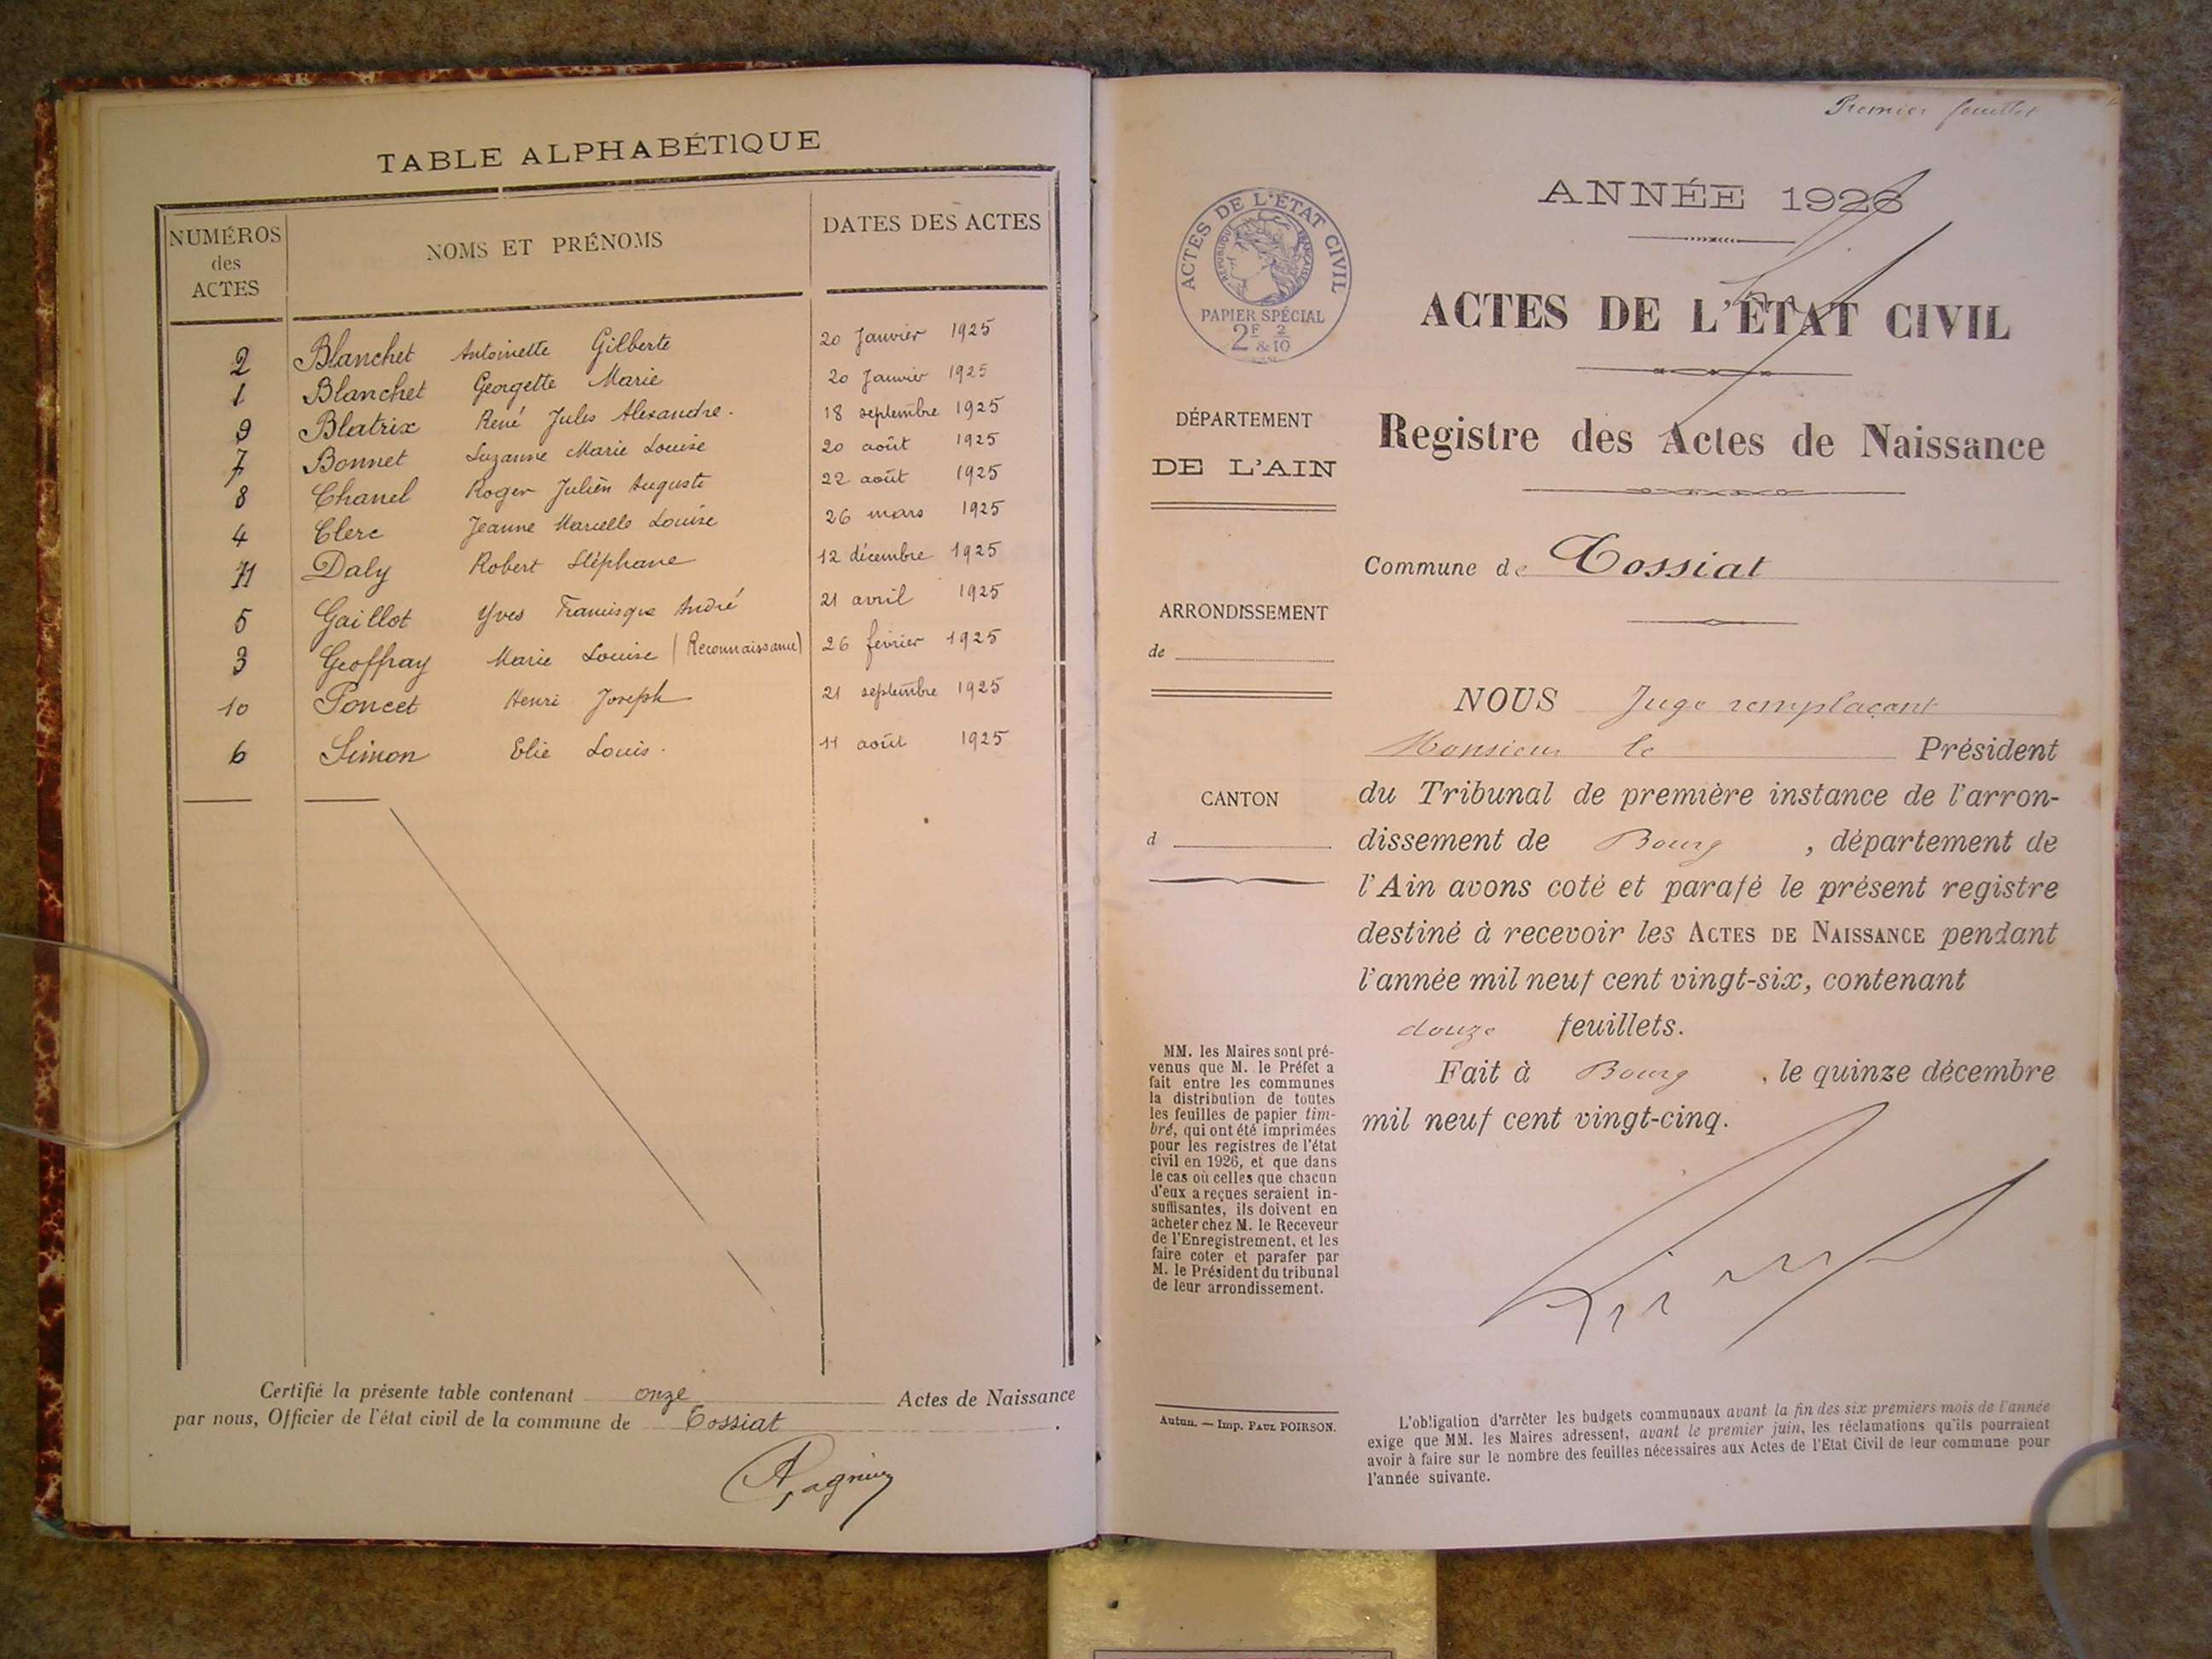 TABLE ALPHABÉTIQUE
NUMÉROS des ACTES
NOMS ET PRÉNOMS
DATES DES ACTES
2 Blanchet Antoinette Gilberte 20 Janvier 1925
1 Blanchet Georgette Marie 20 Janvier 1925
9 Blatrix René Jules Alexandre. 18 septembre 1925
7 Bonnet Suzanne Marie Louise 20 août 1925
8 Chanel Roger Julien Auguste 22 août 1925
4 Clerc Jeanne Marcelle Louise 26 mars 1925
11 Daly Robert Stéphane 12 décembre 1925
5 Gaillot Yves Francisque André 21 avril 1925
3 Geoffray Marie Louise (Reconnaissance) 26 février 1925
10 Poncet Henri Joseph 21 septembre 1925
6 Simon Elie Louis. 11 août 1925
Certifié la présente table contenant onze Actes de Naissance
par nous, Officier de l'état civil de la commune de Tossiat.
Premier feuillet
ANNÉE 1926
ACTES DE L'ÉTAT CIVIL
RÉPUBLIQUE FRANÇAISE
PAPIER SPÉCIAL
2F 2
& 10
ACTES DE L'ÉTAT CIVIL
Registre des Actes de Naissance
DÉPARTEMENT
DE L'AIN
Commune de Tossiat
ARRONDISSEMENT
de
CANTON
d
NOUS Juge remplaçant
Monsieur le Président
du Tribunal de première instance de l'arron-
dissement de Bourg, département de
l'Ain avons coté et parafé le présent registre
destiné à recevoir les ACTES DE NAISSANCE pendant
l'année mil neuf cent vingt-six, contenant
douze feuillets.
Fait à Bourg, le quinze décembre
mil neuf cent vingt-cinq.
MM. les Maires sont pré-
venus que M. le Préfet a
fait entre les communes
la distribution de toutes
les feuilles de papier tim-
bré, qui ont été imprimées
pour les registres de l'état
civil en 1926, et que dans
le cas où celles que chacun
d'eux a reçues seraient in-
suffisantes, ils doivent en
acheter chez M. le Receveur
de l'Enregistrement, et les
faire coter et parafer par
M. le Président du tribunal
de leur arrondissement.
Autun. — Imp. PAUL POIRSON.
L'obligation d'arrêter les budgets communaux avant la fin des six premiers mois de l'année
exige que MM. les Maires adressent, avant le premier juin, les réclamations qu'ils pourraient
avoir à faire sur le nombre des feuilles nécessaires aux Actes de l'Etat Civil de leur commune pour
l'année suivante.